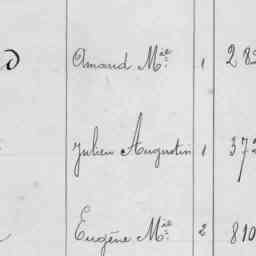 Amand Mie 1 282
Julien Augustin 1 372
Eugène Mie 2 810